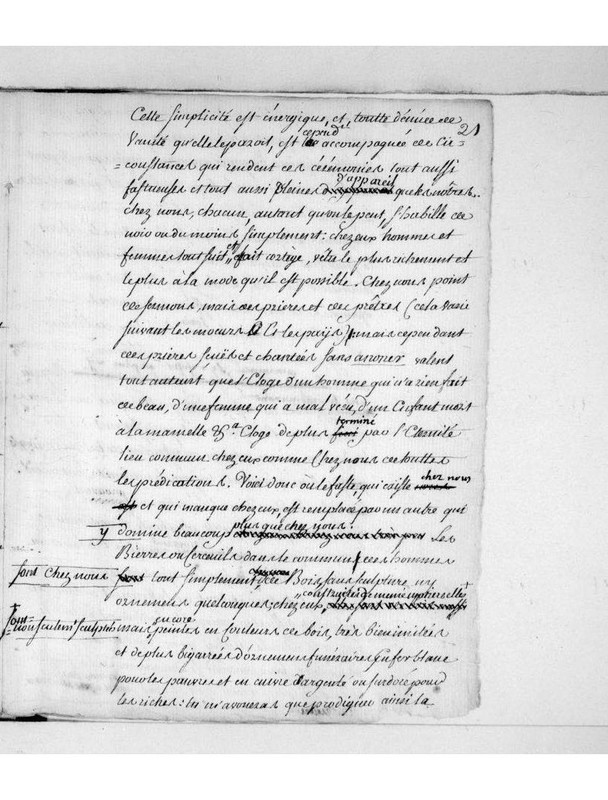 21
Cette simplicité est énergique, et, toutte dénuée de
Vanité qu'elle paroit, est cepend.t accompagnée de Cir=
=constances qui rendent ces cérémonies tout aussi
fastueuses et tout aussi pleines d'appareil que les nôtres.
chez nous, chacun, autant qu'on le peut, s'habille de
noir ou du moins simplement: chez eux hommes et
femmes tout suit et fait cortège, vêtu le plus richement et
le plus a la mode qu'il est possible. Chez nous point
de sermons, mais des prieres et des prêtres (cela varie
suivant les moeurs et les païs) mais cependant
des prieres et chantées sans annoner valent
tout autant que l'Eloge d'un homme qui n'a rien fait
de beau, d'une femme qui a mal vécu, d'un Enfant mort
a la mamelle &.a Eloge de plus terminé par l'Eternité
lieu commun chez eux comme chez nous de touttes
les prédications. Voici donc où le faste, qui existe chez nous
et qui manque chez eux, est remplacé par un autre qui
y domine beaucoup plus que chez nous. Les
Bierres ou Cercueils dans le commun des hommes
sont chez nous tout simplement de Bois, sans sculpture, ny
ornemens quelconques; chez eux, construites de même matiere elles
sont non seulem.t sculptés mais, encore peintes en couleurs de bois, très bien imitées
et de plus bigarrées d'ornemens funéraires en fer blanc
pour les pauvres et en cuivre argenté ou surdoré pour
les riches: tu m'avoueras que prodiguer ainsi la